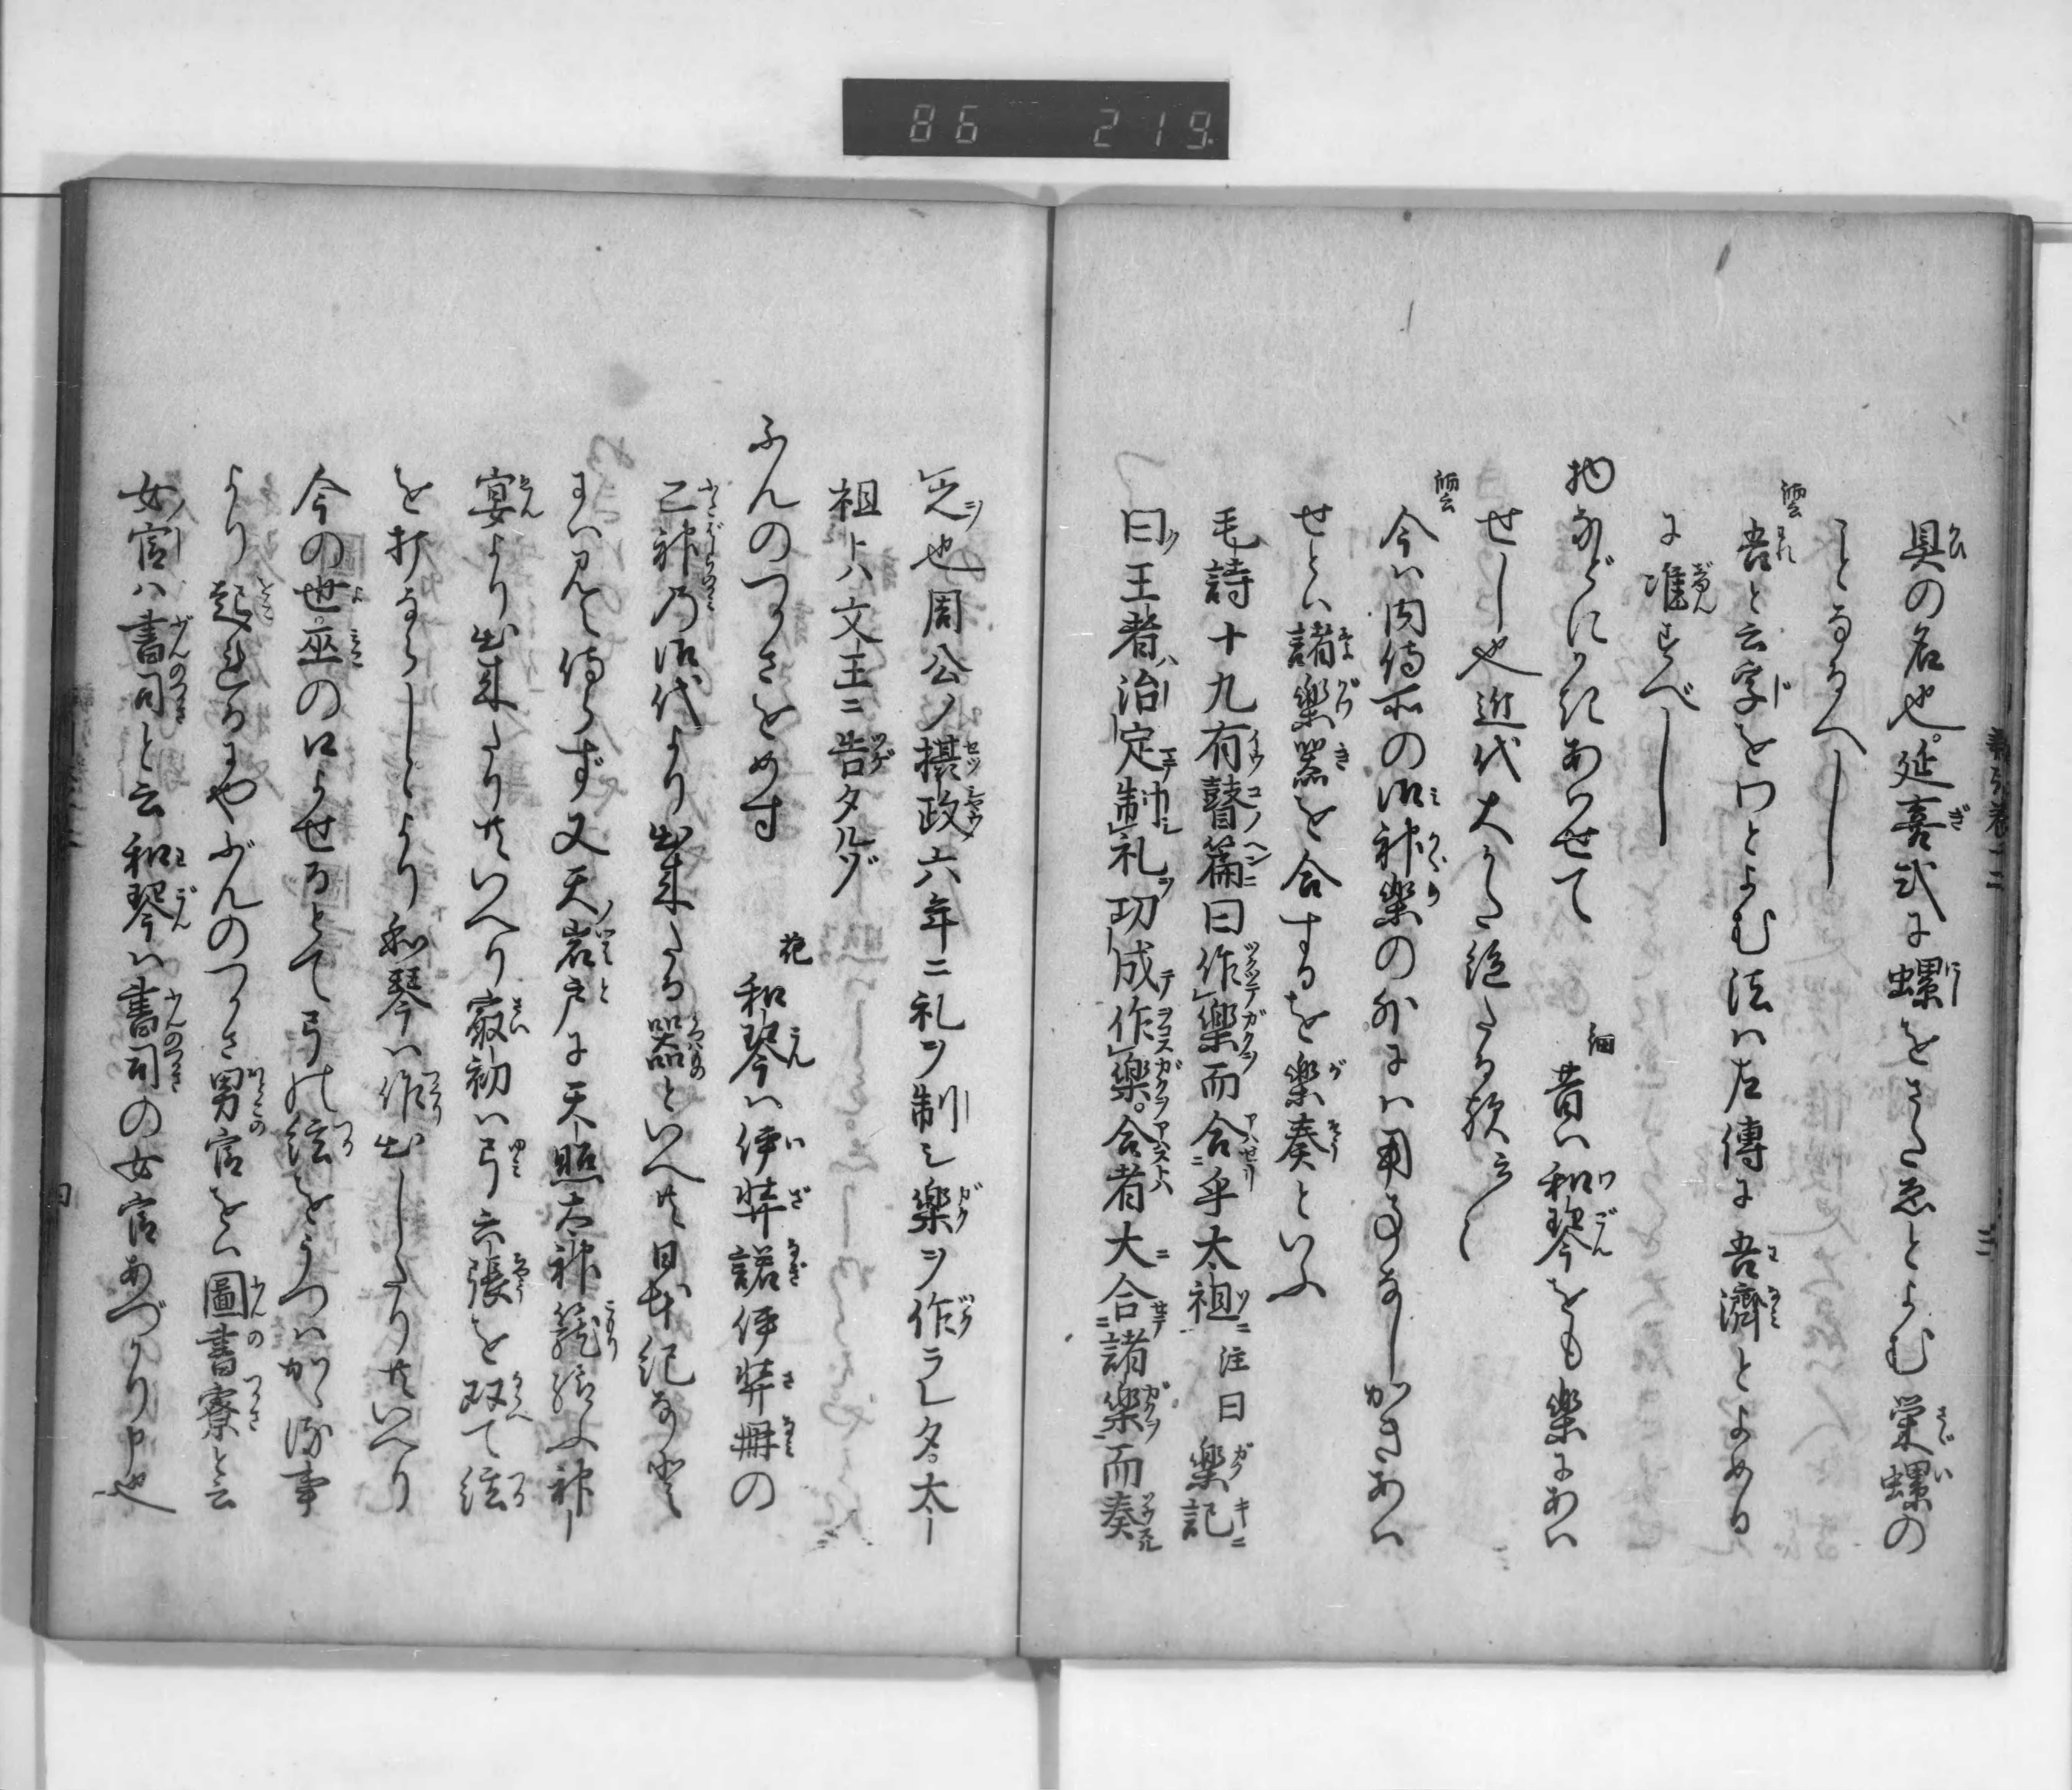 86 219
貝の名也延喜式に螺をさたゑとよむ栄螺の
ことなるへし
師云 吾と云字をワとよむ法ハ左傳に吾濟とよめる
に准ずべし
物などにかきあハせて 細 昔ハ和琴をも楽にあハ
せし也近代大かた絶たる歟云々
師云 今ハ内侍所の御神楽の外にハ用る事なしかきあハ
せとハ諸樂器を合するを楽奏といふ
毛詩十九有瞽篇曰作樂而合乎太祖注曰樂記
曰王者治定制礼功成作樂合者大合諸樂而奏
之也周公ノ摂政六年ニ礼ヲ制シ楽ヲ作ラレタ太
祖トハ文王ニ告タルゾ
ふんのつかさをめす 花 和琴ハ伊弉諾伊弉冊の
二神乃御代より出来たる器といへ共日本紀などに
ハ見え侍らず又天岩戸に天照太神籠給ふ神
宴より出来たり共いへり最初ハ弓六張を双て絃
を打ならしよより和琴ハ作出したり共いへり
今の世巫の口よせるとて弓の絃をうつハかゝる事
より起れるにやぶんのつかさ男官をハ圖書寮と云
女官ハ書司と云和琴ハ書司の女官あづかり申也